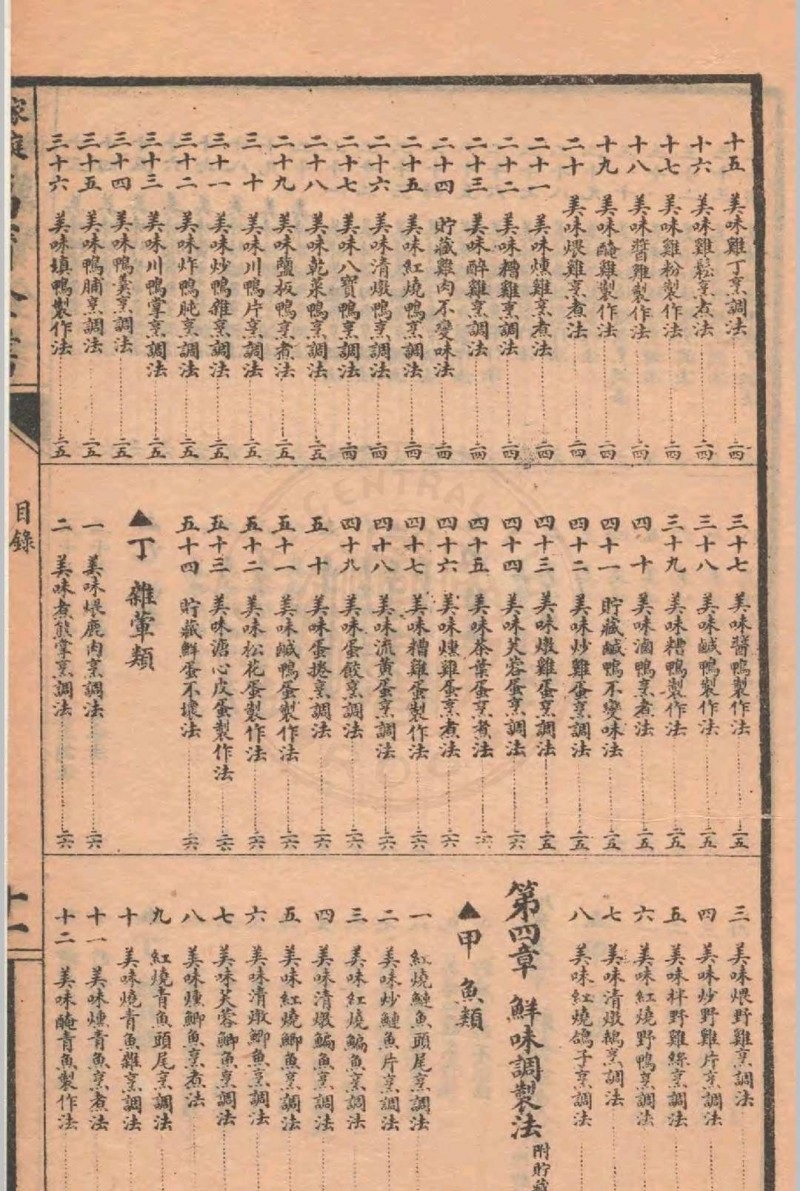 十五 美味雞丁烹調法 二四
十六 美味雞鬆烹煮法 二四
十七 美味雞粉製作法 二四
十八 美味醬雞製作法 二四
十九 美味醃雞製作法 二四
二十 美味煨雞烹煮法 二四
二十一 美味燻雞烹煮法 二四
二十二 美味糟雞烹調法 二四
二十三 美味醉雞烹調法 二四
二十四 貯藏雞肉不變味法 二四
二十五 美味紅燒鴨烹調法 二四
二十六 美味清燉鴨烹調法 二四
二十七 美味八寶鴨烹調法 二四
二十八 美味乾菜鴨烹調法 二五
二十九 美味鹽板鴨烹煮法 二五
三十 美味川鴨片烹調法 二五
三十一 美味炒鴨雜烹調法 二五
三十二 美味炸鴨肫烹調法 二五
三十三 美味川鴨掌烹調法 二五
三十四 美味鴨羹烹調法 二五
三十五 美味鴨脯烹調法 二五
三十六 美味填鴨製作法 二五
三十七 美味醬鴨製作法 二五
三十八 美味鹹鴨製作法 二五
三十九 美味糟鴨製作法 二五
四十 美味滷鴨烹煮法 二五
四十一 貯藏鹹鴨不變味法 二五
四十二 美味炒雞蛋烹調法 二五
四十三 美味燉雞蛋烹調法 二五
四十四 美味芙蓉蛋烹調法 二六
四十五 美味茶葉蛋烹煮法 二六
四十六 美味燻雞蛋烹煮法 二六
四十七 美味糟雞蛋製作法 二六
四十八 美味流黄蛋烹調法 二六
四十九 美味蛋餃烹調法 二六
五十 美味蛋捲烹調法 二六
五十一 美味鹹鴨蛋製作法 二六
五十二 美味松花蛋製作法 二六
五十三 美味溏心皮蛋製作法 二六
五十四 貯藏鮮蛋不壞法 二六
▲丁 雜葷類
一 美味煨鹿肉烹調法 二六
二 美味煮熊掌烹調法 二六
三 美味煨野雞烹調法
四 美味炒野雞片烹調法
五 美味拌野雞絲烹調法
六 美味紅燒野鴨烹調法
七 美味清燉鵪烹調法
八 美味紅燒鴿子烹調法
第四章 鮮味調製法 附貯藏
▲甲 魚類
一 紅燒鰱魚頭尾烹調法
二 美味炒鰱魚片烹調法
三 美味紅燒鯿魚烹調法
四 美味清燉鯿魚烹調法
五 美味紅燒鯽魚烹調法
六 美味清燉鯽魚烹調法
七 美味芙蓉鯽魚烹調法
八 美味燻鯽魚烹煮法
九 紅燒青魚頭尾烹調法
十 美味燒青魚雜烹調法
十一 美味燻青魚烹煮法
十二 美味醃青魚製作法
家庭
目錄
十一
CENTRAL